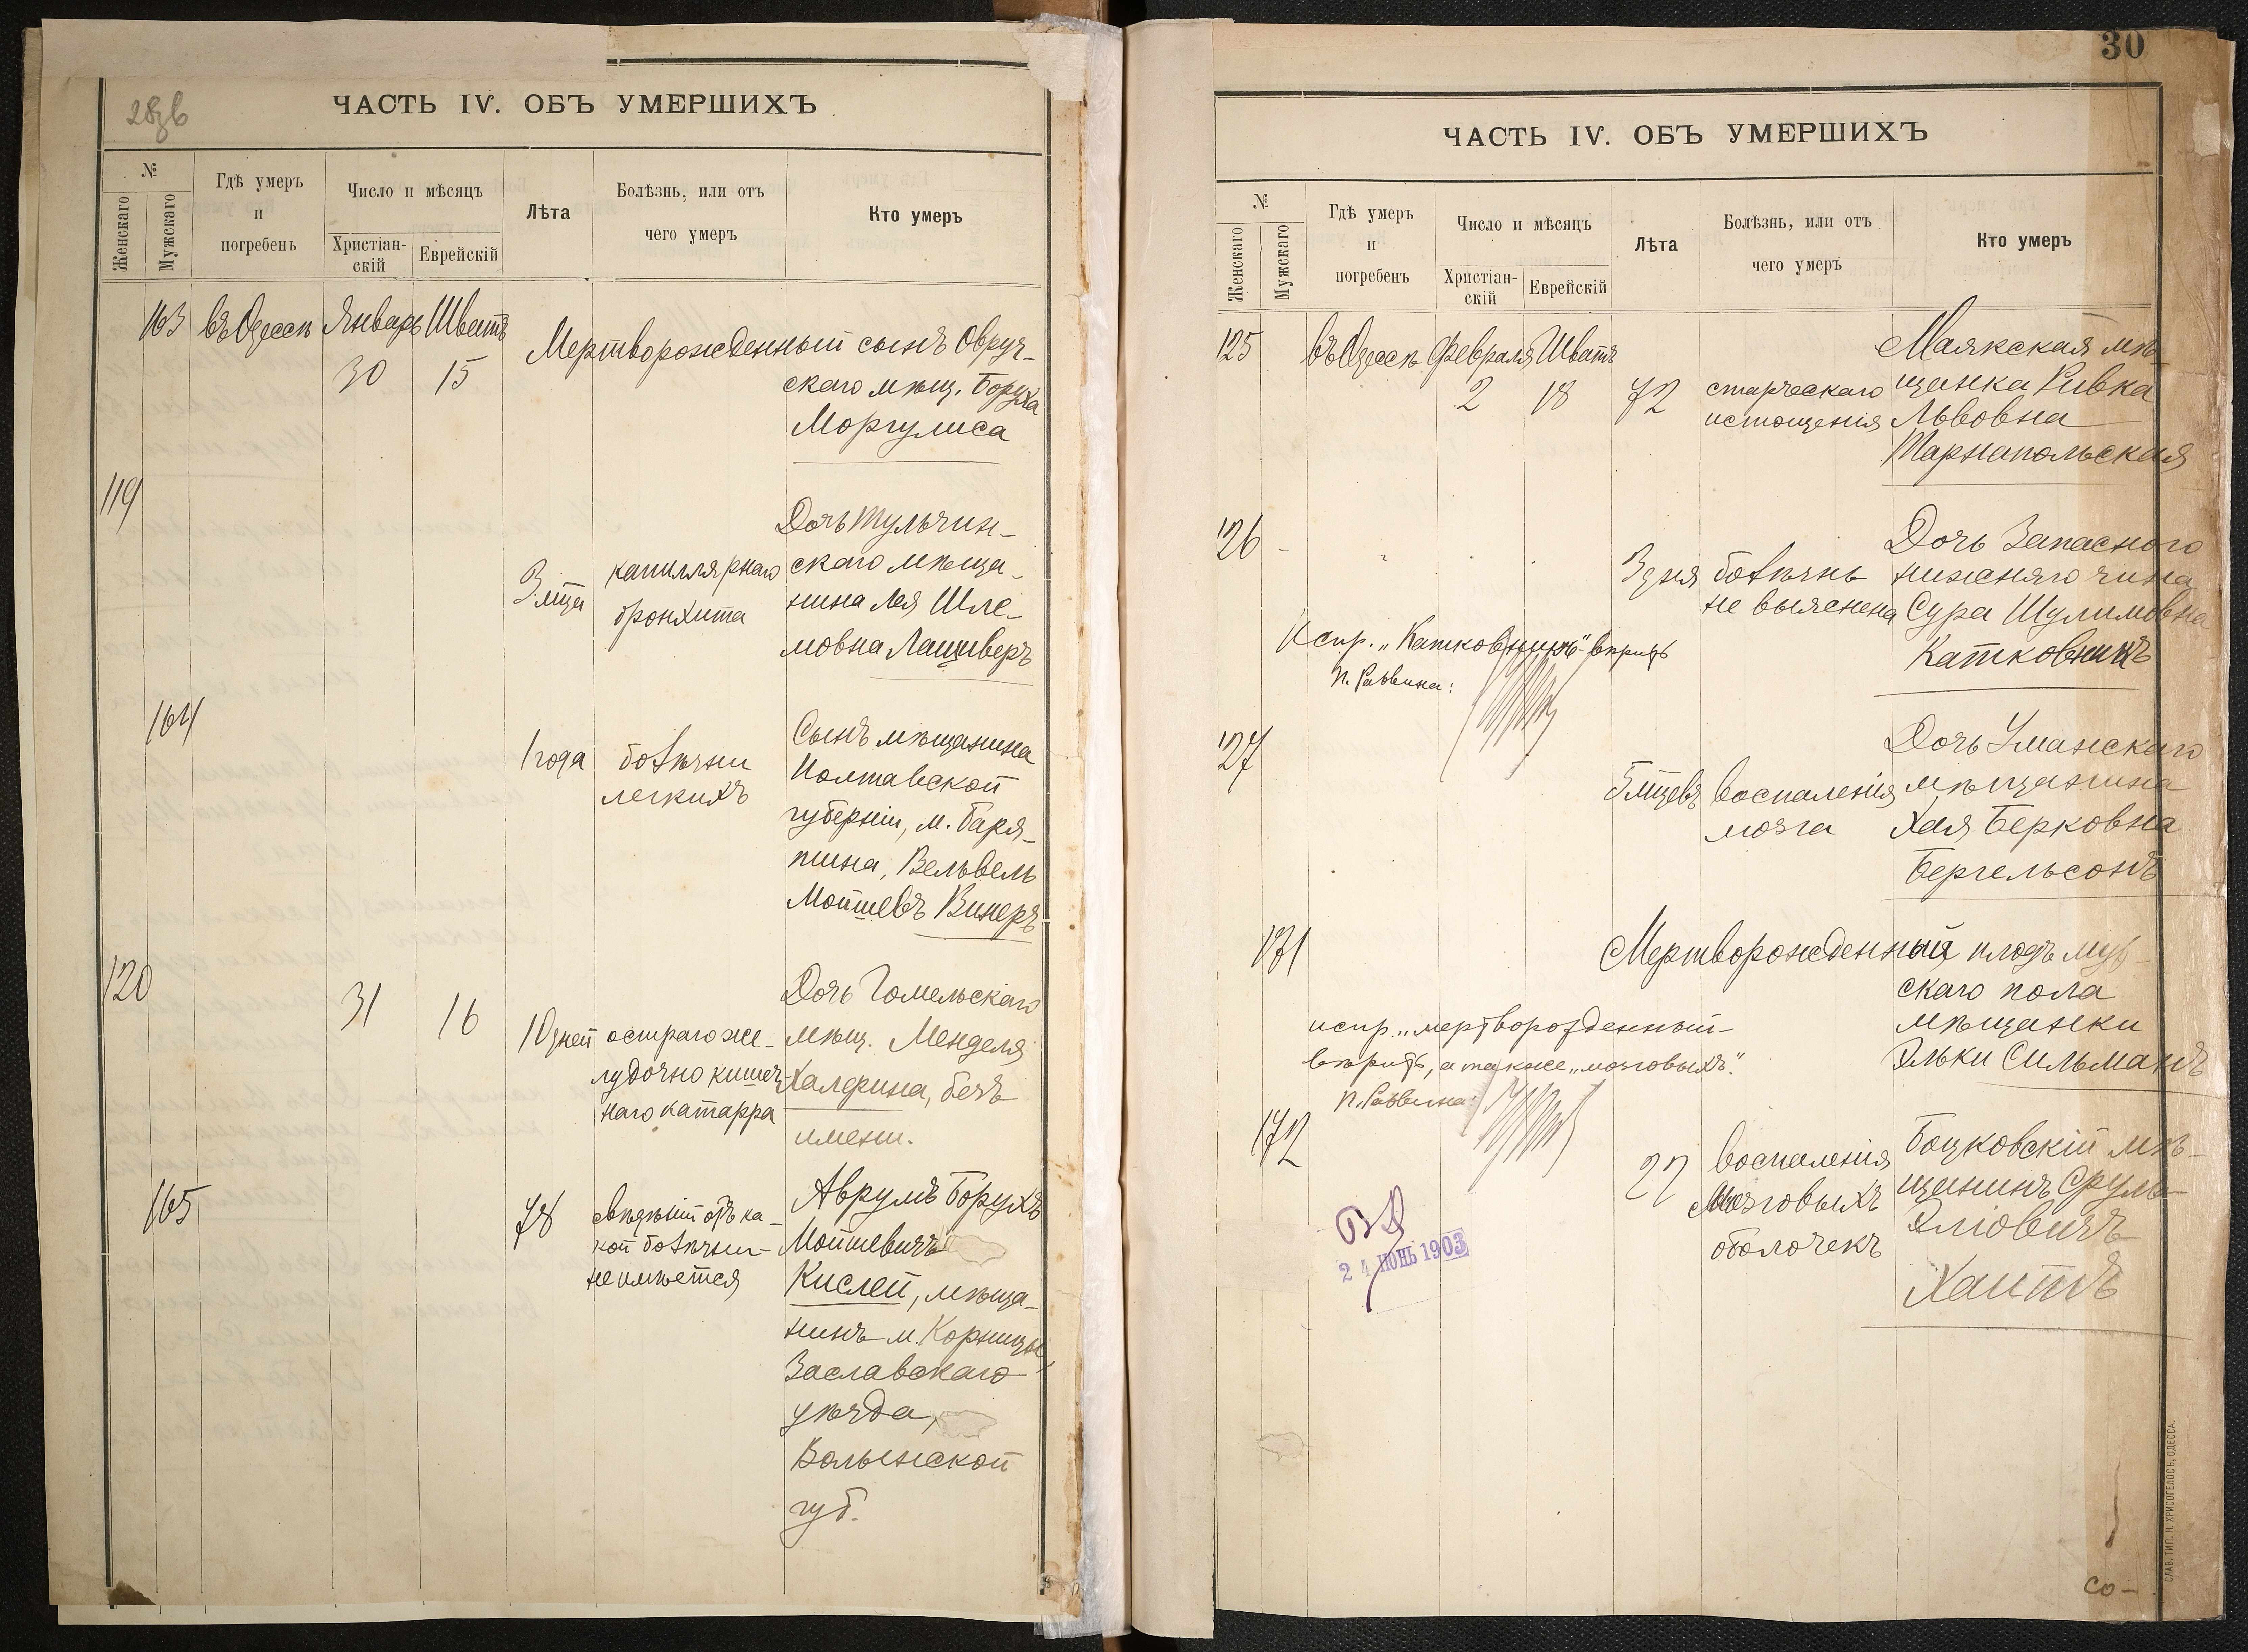 ЧАСТЬ IV. ОБЪ УМЕРШИХЪ
№
Женскаго
Мужскаго
Гдѣ умеръ
и
погребенъ
Число и мѣсяцъ
Христіан-
скій
Еврейскій
Лѣта
Болѣзнь, или отъ
чего умеръ
Кто умеръ
163 въ Одессѣ Январь Шватъ
30 15
Мертворожденный сынъ Овруч-
скаго мѣщ. Боруха
Моргулиса
119
3 мѣца
капиллярнаго
бронхита
Дочь Тульчин-
скаго мѣща-
нина Лея Шле-
мовна Лащиверъ
164
1 года
болѣзни
легкихъ
Сынъ мѣщанина
Полтавской
губерніи, м. Баря-
тина, Вельвель
Мойшевъ Винеръ
120
31 16
10 дней
остраго же-
лудочно кишеч-
наго катарра
Дочь Гомельскаго
мѣщ. Менделя
Халфина, безъ
имени.
165
78
свѣдѣній отъ ка-
кой болѣзни-
не имѣется
Аврумъ Борухъ
Мойшевичъ
Кислей, мѣща-
нинъ м. Корницы,
Заславскаго
уѣзда,
Волынской
губ.
30
ЧАСТЬ IV. ОБЪ УМЕРШИХЪ
№
Женскаго
Мужскаго
Гдѣ умеръ
и
погребенъ
Число и мѣсяцъ
Христіан-
скій
Еврейскій
Лѣта
Болѣзнь, или отъ
чего умеръ
Кто умеръ
125 въ Одессѣ Февраля Шватъ
2 18 72
старческаго
истощенія
Маякская мѣ-
щанка Ривка
Львовна
Тарнапольская
126
3 дня
болѣзнь
не выяснена
Дочь Запасного
нижняго чина
Сура Шулимовна
Катковникъ
Испр. „Катковникъ" вѣрить
П. Раввина:
127
воспаленія
мозга
Дочь Уманскаго
мѣщанина
Хая Берковна
Бергельсонъ
171
Мертворожденный плодъ муж-
скаго пола
мѣщанки
Эльки Сильманъ
испр. „мертворожденный-
вѣрить, а также „мозговыхъ".
П. Раввина:
172
22
воспаленія
Мозговыхъ
оболочекъ
Боцковскій мѣ-
щанинъ Сруль
Эліовичъ
Хаитъ
24 ІЮНЬ 1903
со-
СЛАВ. ТИП. Н. ХРИСОГЕЛОСЪ, ОДЕССА.